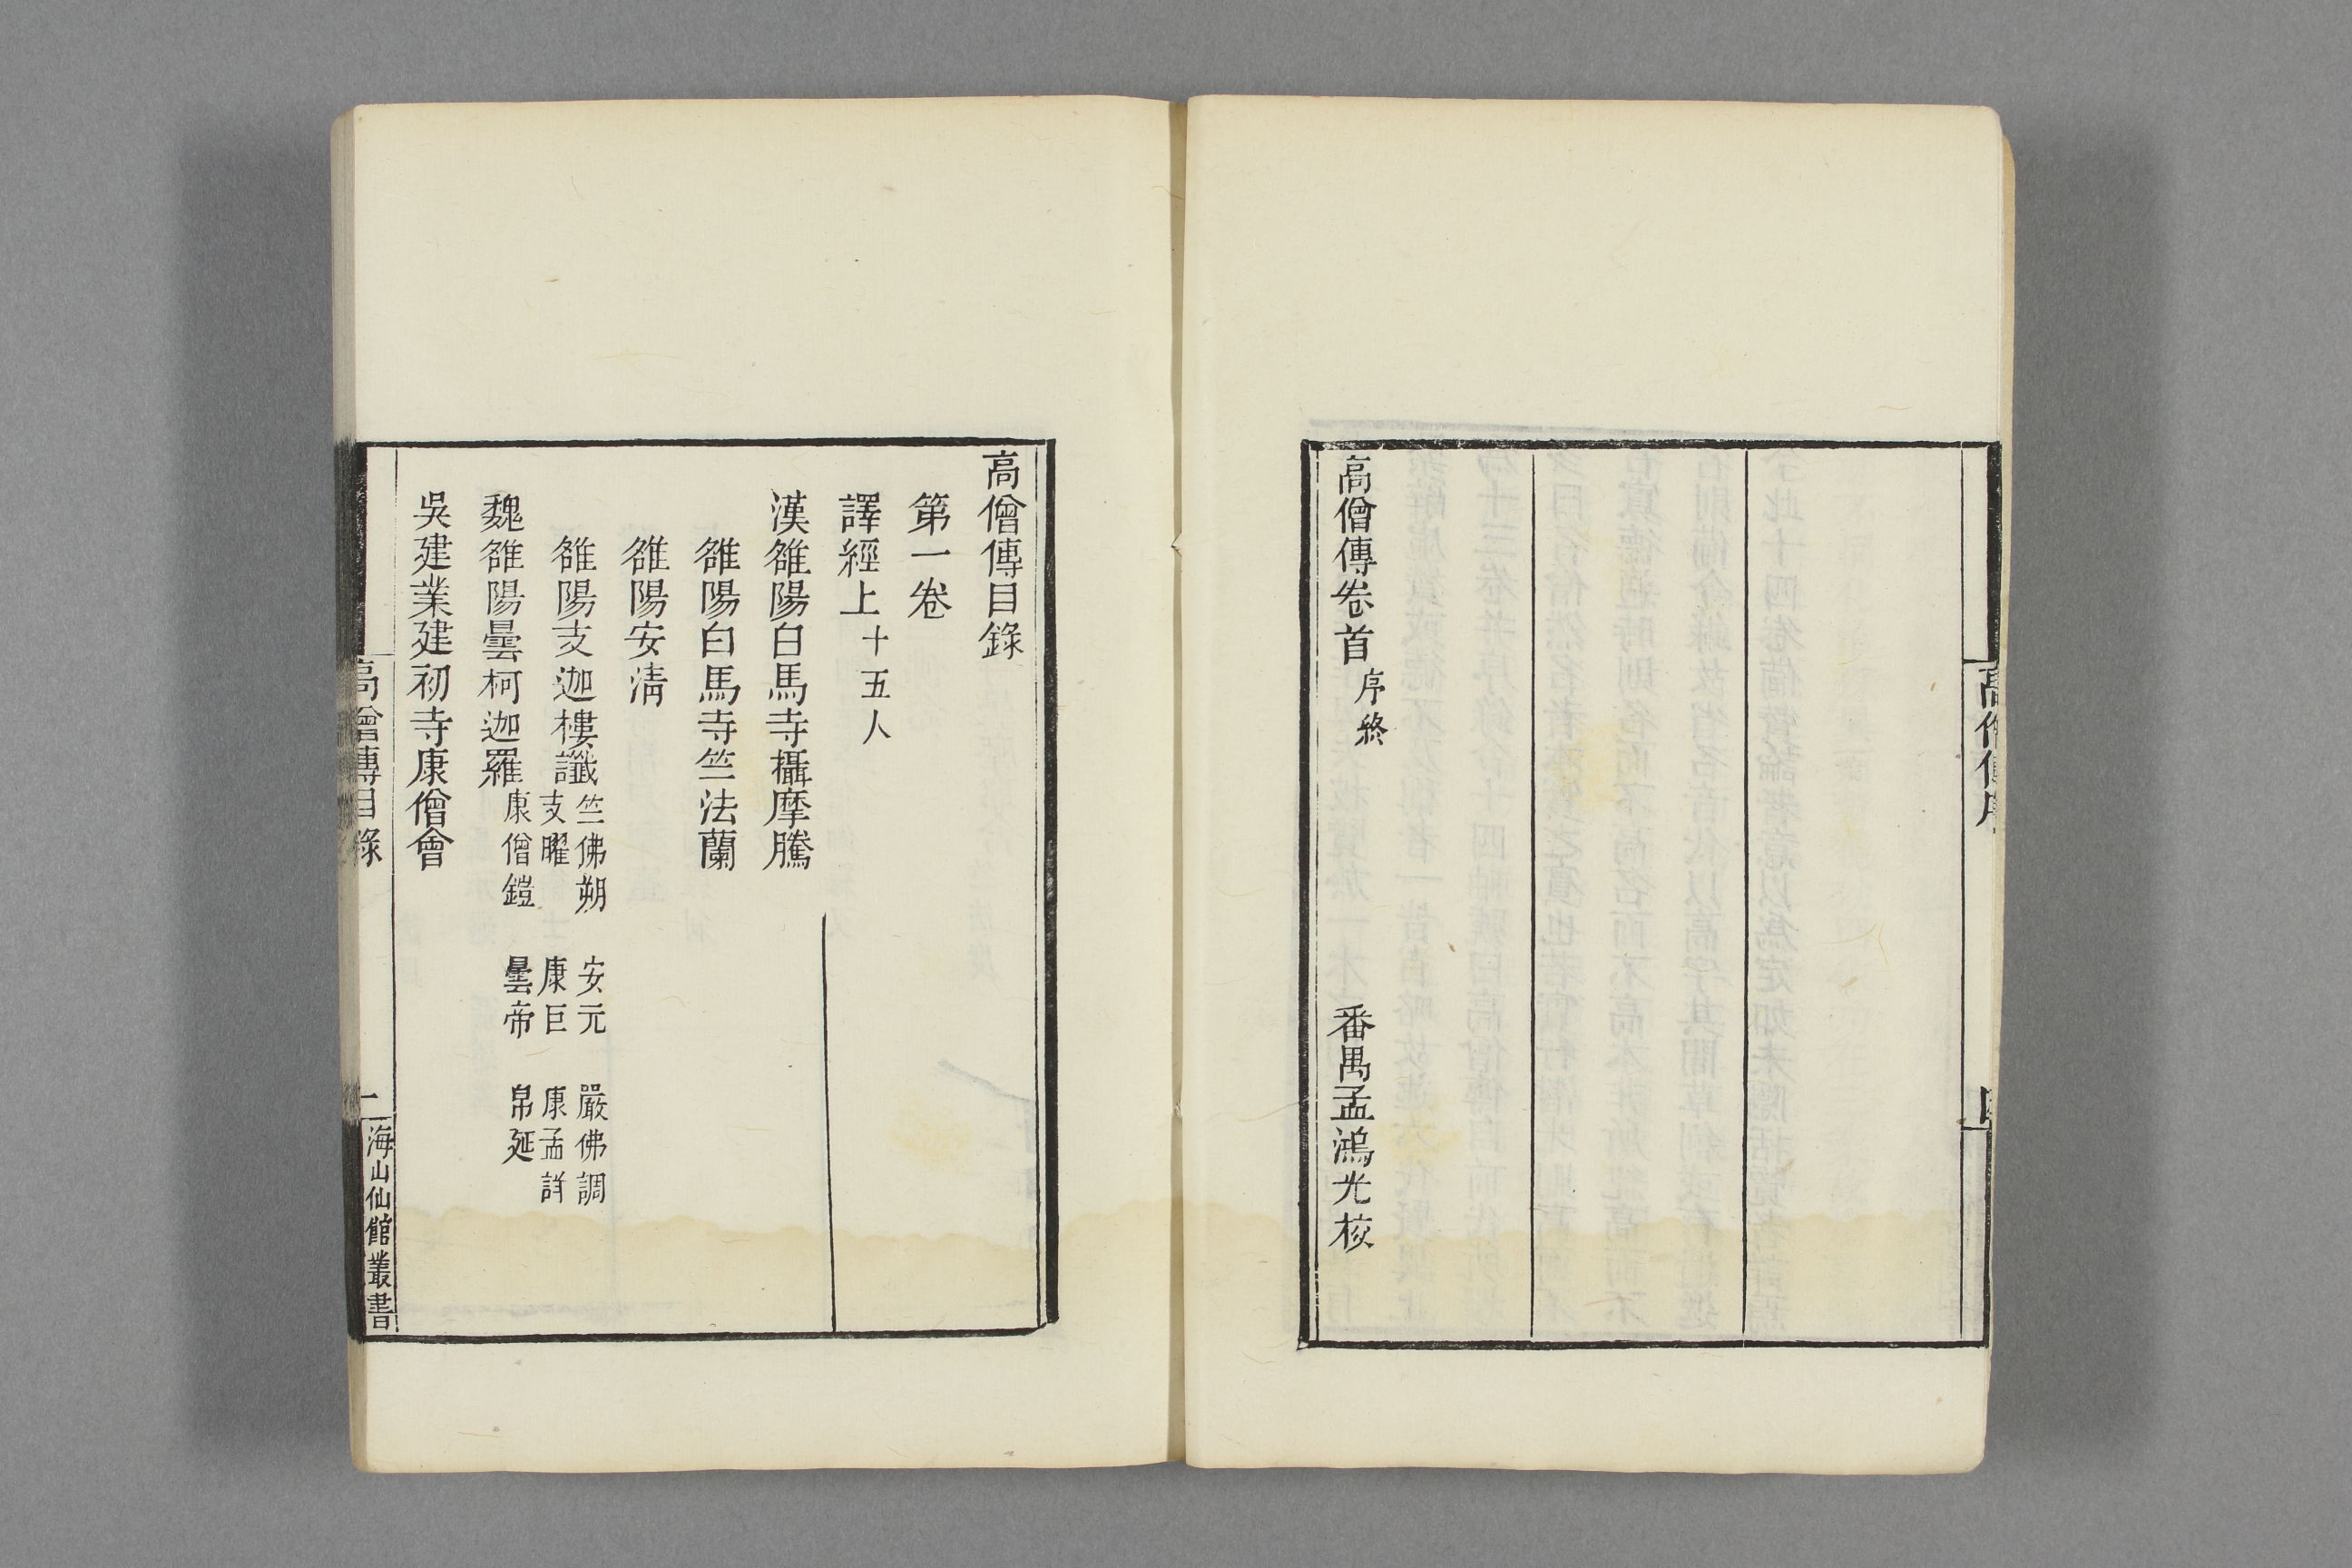 高僧傳序
四
高僧傳卷首序終 番禺孟鴻光校
高僧傳目錄
第一卷
譯經上十五人
漢雒陽白馬寺攝摩騰
雒陽白馬寺竺法蘭
雒陽安清
雒陽支迦樓讖竺佛朔 安元 嚴佛調
支曜 康巨 康孟詳
魏雒陽曇柯迦羅康僧鎧 曇帝 帛延
吳建業建初寺康僧會
高僧傳目錄
一
海山仙館叢書